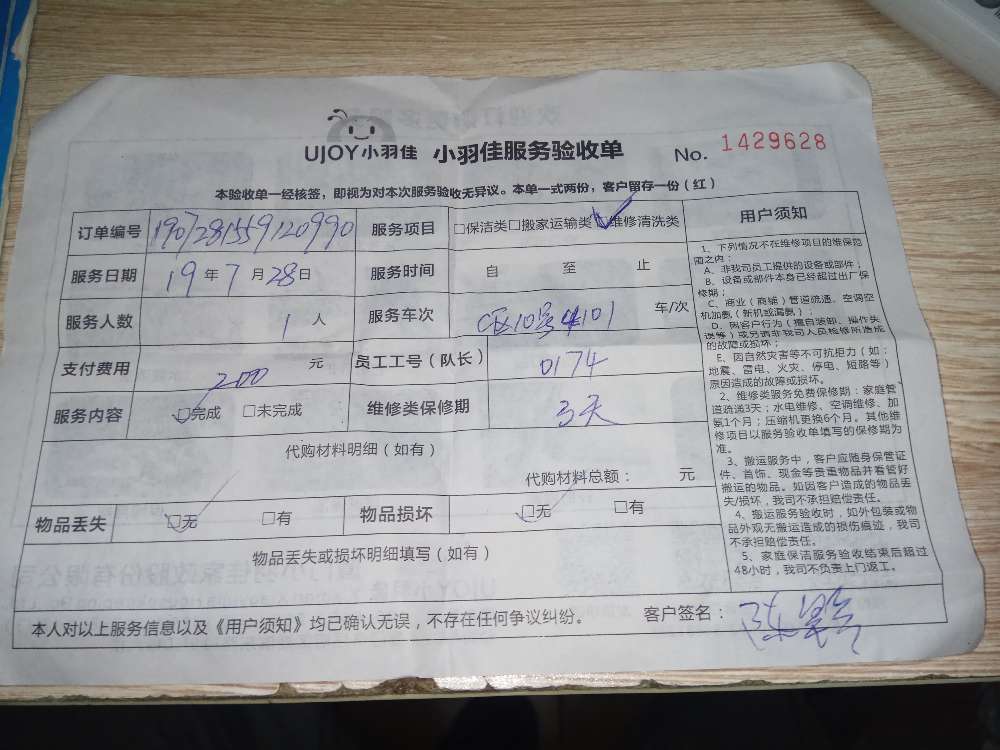 UJOY小羽佳 小羽佳服务验收单 No. 1429628
本验收单一经核签，即视为对本次服务验收无异议。本单一式两份，客户留存一份（红）
订单编号 190728155912099０ 服务项目 □保洁类□搬家运输类□维修清洗类
服务日期 19 年 7 月 28 日 服务时间 自 至 止
服务人数 1 人 服务车次 C区10号4101 车/次
支付费用 200 元 员工工号（队长） 0174
服务内容 □完成 □未完成 维修类保修期 3天
代购材料明细（如有）
代购材料总额： 元
物品丢失 □无 □有 物品损坏 □无 □有
物品丢失或损坏明细填写（如有）
用户须知
1、下列情况不在维修项目的维保范
围之内：
A、非我司员工提供的设备或部件；
B、设备或部件本身已经超过出厂保
修期；
C、商业（商铺）管道疏通、空调空
机加氨（新机或漏氨）；
D、因客户行为（擅自装卸、操作失
误等）或另请非我司人员检修所造成
的故障或损坏；
E、因自然灾害等不可抗拒力（如：
地震、雷电、火灾、停电、短路等）
原因造成的故障或损坏。
2、维修类服务免费保修期：家庭管
道疏通3天；水电维修、空调维修、加
氨1个月；压缩机更换6个月。其他维
修项目以服务验收单填写的保修期为
准。
3、搬运服务中，客户应随身保管证
件、首饰、现金等贵重物品并看管好
搬运的物品。如因客户造成的物品丢
失/损坏，我司不承担赔偿责任。
4、搬运服务验收时，如外包装或物
品外观无搬运造成的损伤痕迹，我司
不承担赔偿责任。
5、家庭保洁服务验收结束后超过
48小时，我司不负责上门返工。
本人对以上服务信息以及《用户须知》均已确认无误，不存在任何争议纠纷。 客户签名：